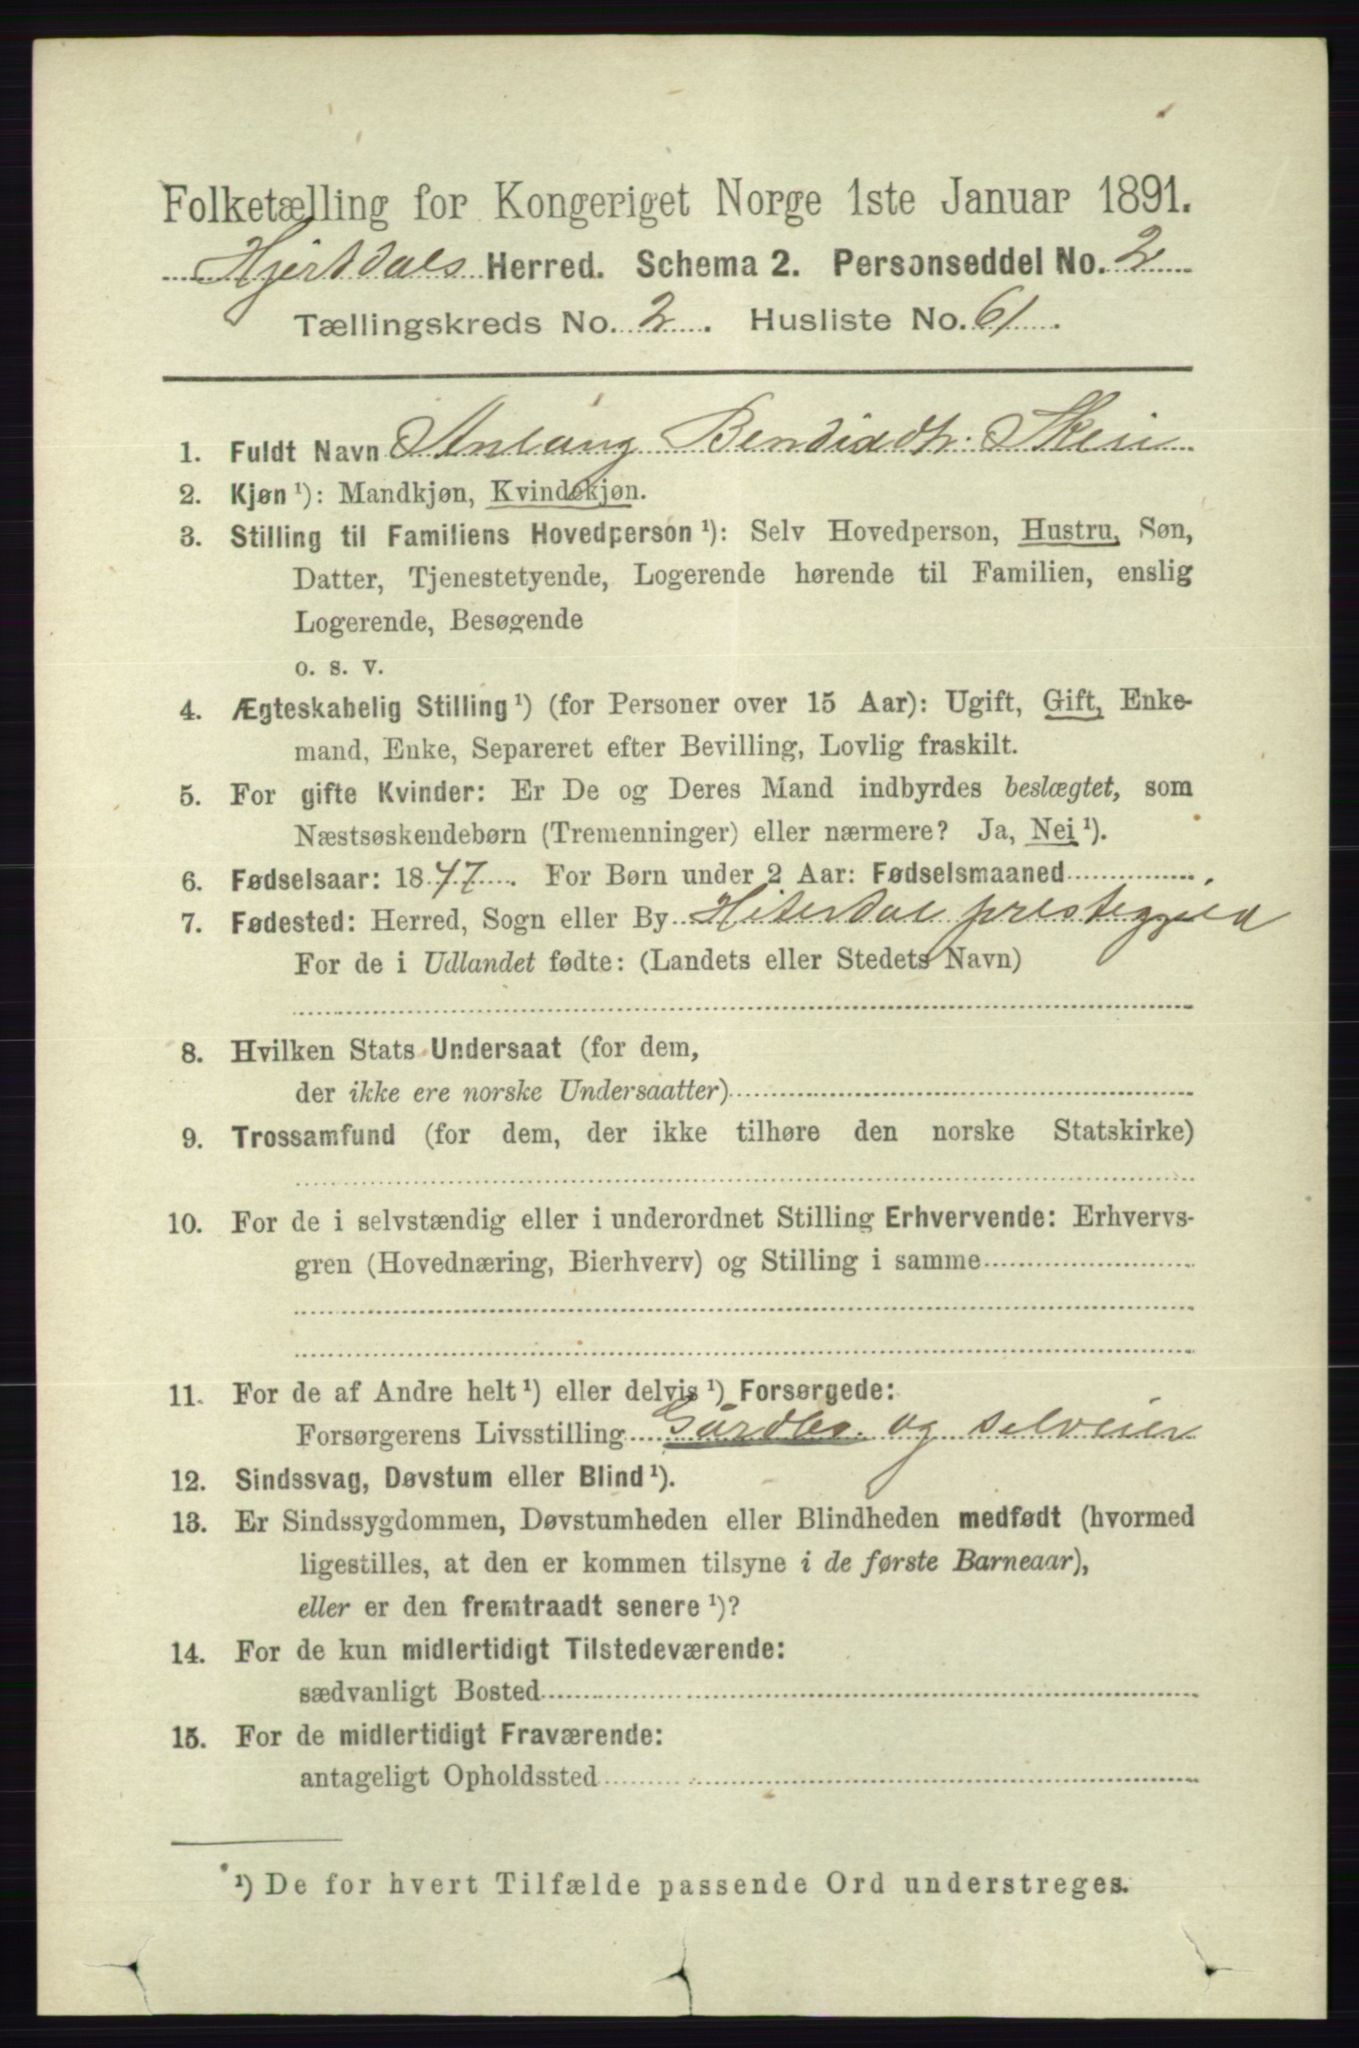 Folketælling for Kongeriget Norge 1ste Januar 1891.
Hjertdals Herred. Schema 2. Personseddel No. 2
Tællingskreds No. 2. Husliste No. 61.
1. Fuldt Navn Anlaug Bendixdtr. Skeie
2. Kjøn ¹): Mandkjøn, Kvindekjøn.
3. Stilling til Familiens Hovedperson ¹): Selv Hovedperson, Hustru, Søn,
Datter, Tjenestetyende, Logerende hørende til Familien, enslig
Logerende, Besøgende
o. s. v.
4. Ægteskabelig Stilling ¹) (for Personer over 15 Aar): Ugift, Gift, Enke-
mand, Enke, Separeret efter Bevilling, Lovlig fraskilt.
5. For gifte Kvinder: Er De og Deres Mand indbyrdes beslægtet, som
Næstsøskendebørn (Tremenninger) eller nærmere? Ja, Nei ¹).
6. Fødselsaar: 1847. For Børn under 2 Aar: Fødselsmaaned
7. Fødested: Herred, Sogn eller By Hiterdal prestegjeld
For de i Udlandet fødte: (Landets eller Stedets Navn)
8. Hvilken Stats Undersaat (for dem,
der ikke ere norske Undersaatter)
9. Trossamfund (for dem, der ikke tilhøre den norske Statskirke)
10. For de i selvstændig eller i underordnet Stilling Erhvervende: Erhvervs-
gren (Hovednæring, Bierhverv) og Stilling i samme
11. For de af Andre helt ¹) eller delvis ¹) Forsørgede:
Forsørgerens Livsstilling Gårdbr. og selveier
12. Sindssvag, Døvstum eller Blind ¹).
13. Er Sindssygdommen, Døvstumheden eller Blindheden medfødt (hvormed
ligestilles, at den er kommen tilsyne i de første Barneaar),
eller er den fremtraadt senere ¹)?
14. For de kun midlertidigt Tilstedeværende:
sædvanligt Bosted
15. For de midlertidigt Fraværende:
antageligt Opholdssted
¹) De for hvert Tilfælde passende Ord understreges.